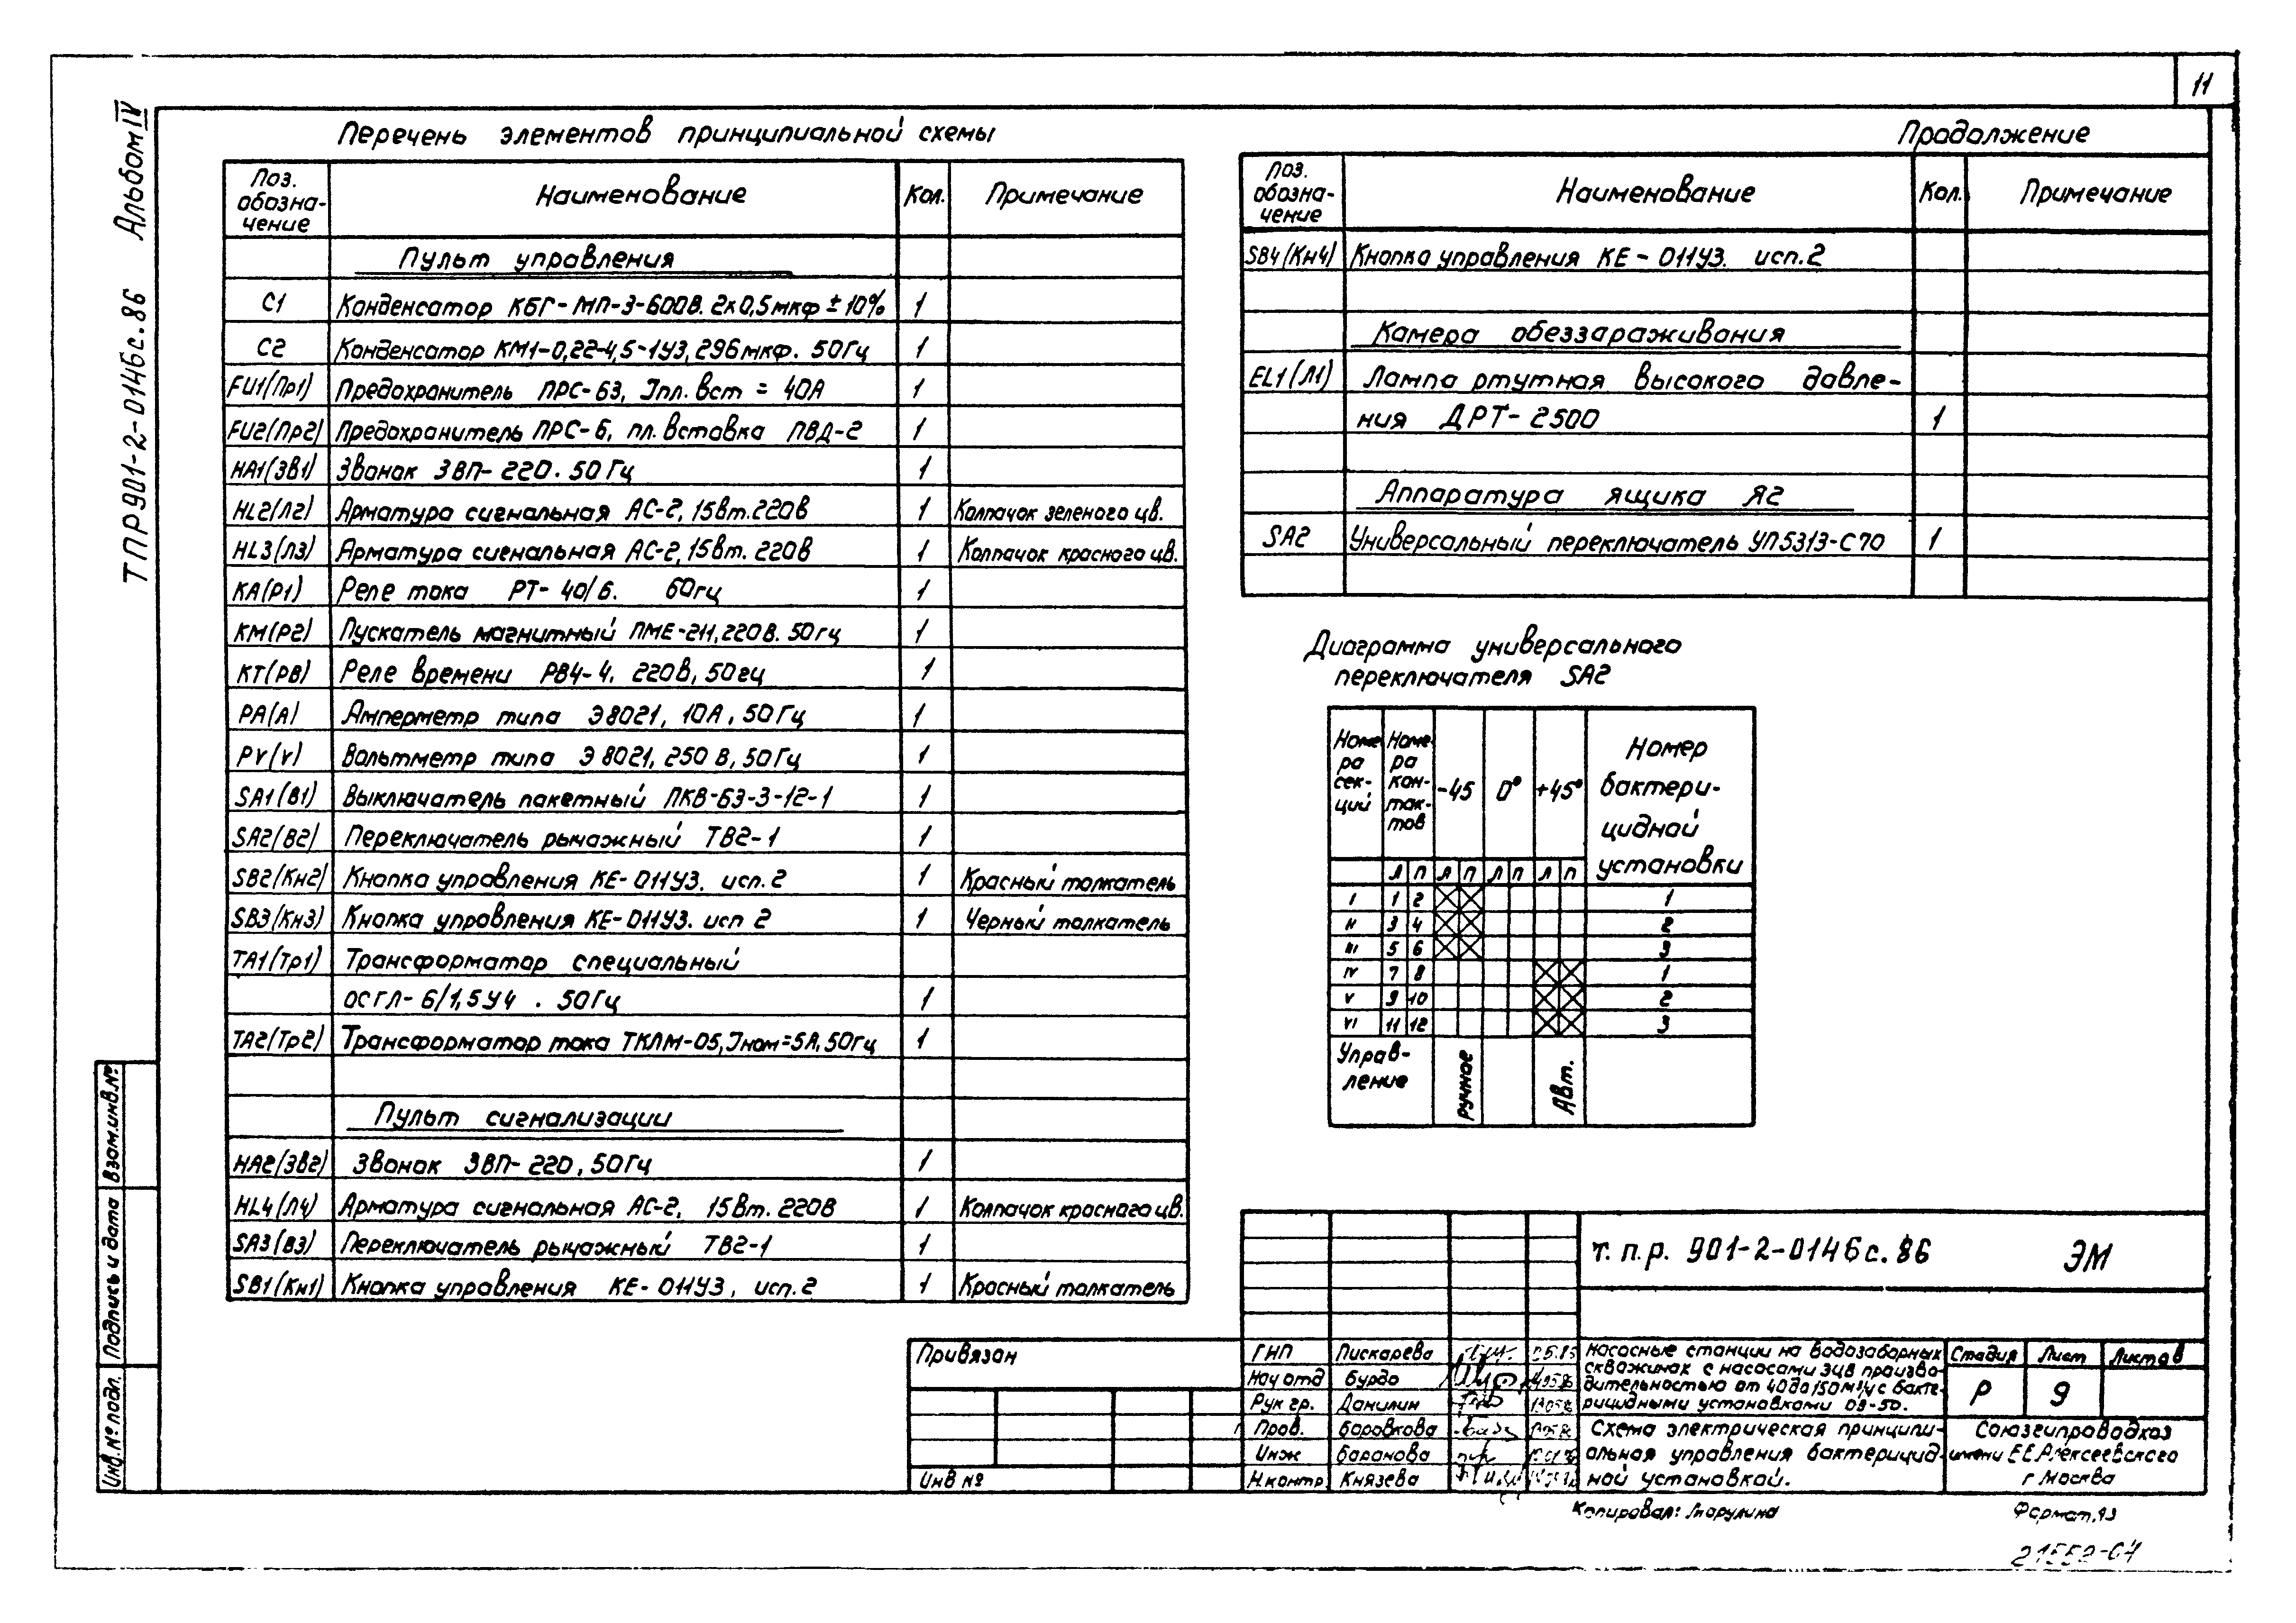 11
ТПР901-2-0146с.86 Альбом IV
Перечень элементов принципиальной схемы
Поз. обозна-чение Наименование Кол. Примечание
Пульт управления
C1 Конденсатор КБГ-МП-3-600В. 2х0,5мкф ±10% 1
C2 Конденсатор КМ1-0,22-4,5-1У3, 296мкф. 50Гц 1
FU1(Пр1) Предохранитель ПРС-63, Iпл. вст = 40А 1
FU2(Пр2) Предохранитель ПРС-6, пл. вставка ПВД-2 1
HA1(ЗВ1) Звонок ЗВП-220. 50Гц 1
HL2(Л2) Арматура сигнальная АС-2, 15вт. 220в 1 Колпачок зеленого цв.
HL3(Л3) Арматура сигнальная АС-2, 15вт. 220в 1 Колпачок красного цв.
KA(Р1) Реле тока РТ-40/6. 60гц 1
KM(Р2) Пускатель магнитный ПМЕ-211, 220в. 50гц 1
KT(РВ) Реле времени РВ4-4, 220в, 50гц 1
PA(А) Амперметр типа Э8021, 10А, 50Гц 1
PV(V) Вольтметр типа Э8021, 250 В, 50Гц 1
SA1(В1) Выключатель пакетный ПКВ-63-3-12-1 1
SA2(В2) Переключатель рычажный ТВ2-1 1
SB2(Кн2) Кнопка управления КЕ-011У3. исп. 2 1 Красный толкатель
SB3(Кн3) Кнопка управления КЕ-011У3. исп 2 1 Черный толкатель
TA1(Тр1) Трансформатор специальный
ОСГЛ-6/1,5У4 . 50Гц 1
TA2(Тр2) Трансформатор тока ТКЛМ-05, Iном=5А, 50гц 1
Пульт сигнализации
HA2(ЗВ2) Звонок ЗВП-220, 50Гц 1
HL4(Л4) Арматура сигнальная АС-2, 15вт. 220в 1 Колпачок красного цв.
SA3(В3) Переключатель рычажный ТВ2-1 1
SB1(Кн1) Кнопка управления КЕ-011У3, исп. 2 1 Красный толкатель
Продолжение
Поз. обозна-чение Наименование Кол. Примечание
SB4(Кн4) Кнопка управления КЕ-011У3. исп. 2
Камера обеззараживания
EL1(Л1) Лампа ртутная высокого давле-
ния ДРТ-2500 1
Аппаратура ящика Я2
SA2 Универсальный переключатель УП5313-С70 1
Диаграмма универсального
переключателя SA2
Номе-ра сек-ций Номе-ра кон-так-тов -45 0° +45° Номер бактери-цидной установки
Л П Л П Л П Л П
I 1 2 1
II 3 4 2
III 5 6 3
IV 7 8 1
V 9 10 2
VI 11 12 3
Управ-ление ручное Авт.
т.п.р. 901-2-0146с.86 ЭМ
Привязан
Инв №
ГИП Пискарева
Нач отд Бурдо
Рук гр. Данилин
Пров. Боровкова
Инж Баранова
Н.контр. Князева
Насосные станции на водозаборных
скважинах с насосами ЭЦВ произво-
дительностью от 40 до 150 м³/ч с бакте-
рицидными установками ОВ-50.
Стадия Лист Листов
Р 9
Схема электрическая принципи-
альная управления бактерицид-
ной установкой.
Союзгипроводхоз
имени Е.Е.Алексеевского
г Москва
Копировал:
Формат А3
Взам.инв.№
Подпись и дата
Инв.№ подл.